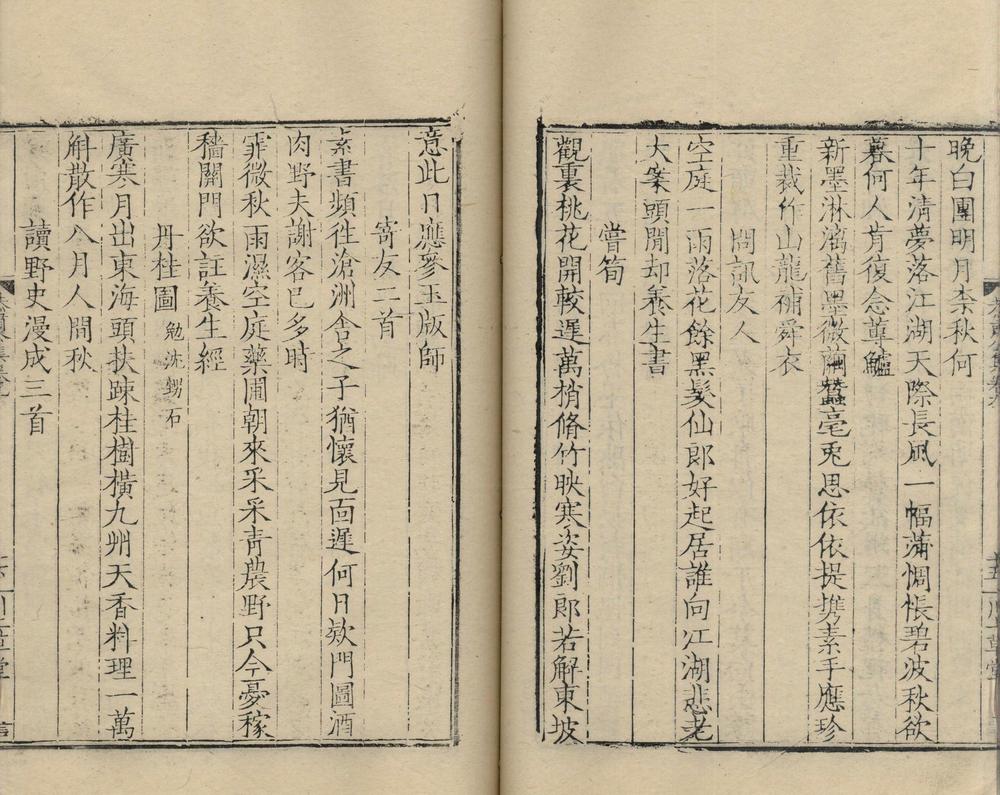 晚白團明月柰秋何
十年清夢落江湖天際長風一幅蒲惆悵碧波秋欲
暮何人肯復念蓴鱸
新墨淋漓舊墨微繭蠶毫兎思依依提携素手應珍
重裁作山龍補舜衣
問訊友人
空庭一雨落花餘黑髮仙郎好起居誰向江湖悲老
大案頭閒却養生書
嘗筍
觀裏桃花開較遲萬梢脩竹映寒姿劉郎若解東坡
意此日應參玉版師
寄友二首
素書頻徃滄洲舍之子猶懷見面遲何日欵門圖酒
肉野夫謝客已多時
霏微秋雨濕空庭藥圃朝來采采青農野只今憂稼
穡關門欲註養生經
丹桂圖 勉沈甥石
廣寒月出東海頭扶踈桂樹橫九州天香料理一萬
斛散作八月人間秋
讀野史漫成三首